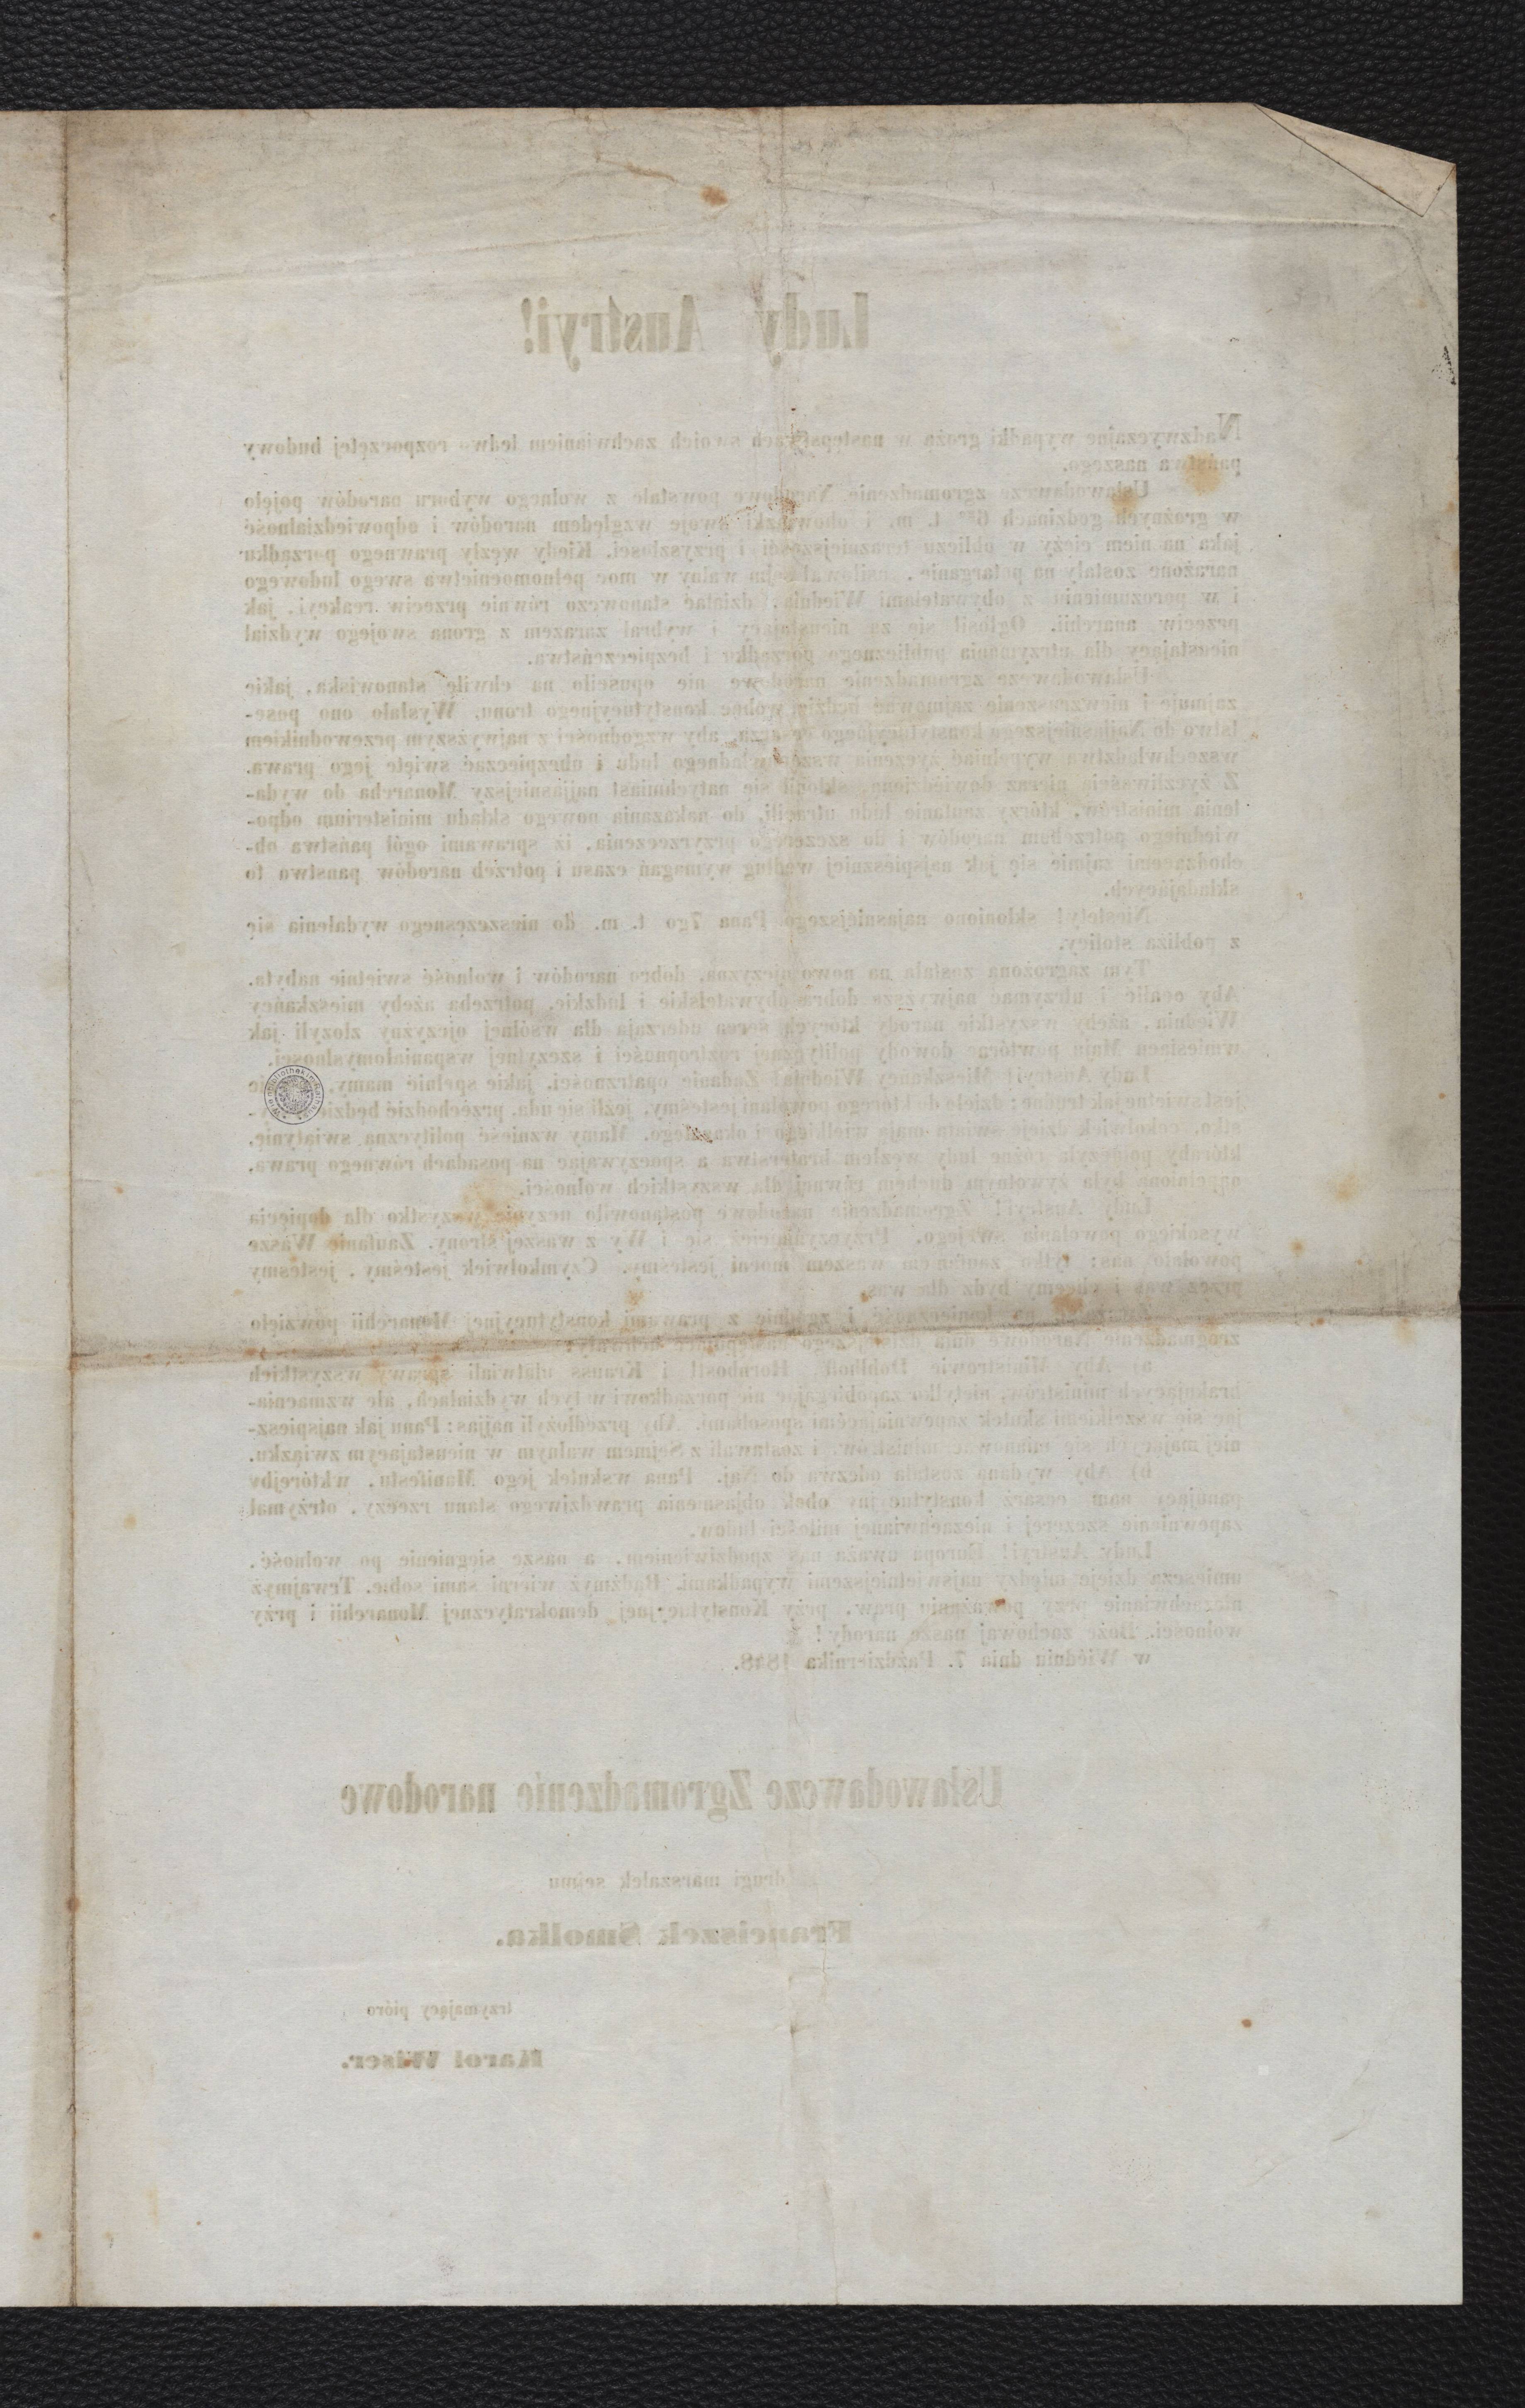 Ludy Austryi!
Nadzwyczajne wypadki grożą w następstwach swoich zachwianiem ledwo rozpoczętej budowy
państwa naszego.
Ustawodawcze zgromadzenie Narodowe powstałe z wolnego wyboru narodów pojęło
w groźnych godzinach t. m. i obowiązki swoje względem narodów i odpowiedzialność
jaka na niem cięży w obliczu teraźniejszości i przyszłości. Kiedy węzły prawnego porządku
narażone zostały na potarganie, usiłował sejm walny w moc pełnomocnictwa swego ludowego
i w porozumieniu z obywatelami Wiednia, działać stanowczo równie przeciw reakcyi, jak
przeciw anarchii. Ogłosił się za nieustający i wybrał zarazem z grona swojego wydział
nieustający dla utrzymania publicznego porządku i bezpieczeństwa.
Ustawodawcze zgromadzenie narodowe nie opuściło na chwilę stanowiska, jakie
zajmuje i niewzruszenie zajmować będzie wobec konstytucyjnego tronu. Wysłało ono pose-
lstwo do Najjaśniejszego konstytucyjnego cesarza, aby wzgodności z najwyższym przewodnikiem
wszechwładztwa wypełniać życzenia wszechwładnego ludu i ubezpieczać święte jego prawa.
Z życzliwością nieraz dowiedzioną, skłonił się natychmiast najjaśniejszy Monarcha do wyda-
lenia ministrów, którzy zaufanie ludu utracili, do nakazania nowego składu ministerium odpo-
wiedniego potrzebom narodów i do szczerego przyrzeczenia, iż sprawami ogół państwa ob-
chodzącemi zajmie się jak najspieszniej według wymagań czasu i potrzeb narodów państwo to
składających.
Niestety! skłoniono najasniejszego Pana 7go t. m. do nieszczęsnego wydalenia się
z pobliża stolicy.
Tym zagrożona została na nowo ojczyzna, dobro narodów i wolność swietnie nabyta.
Aby ocalić i utrzymać najwyższe dobra obywatelskie i ludzkie, potrzeba ażeby mieszkańcy
Wiednia, ażeby wszystkie narody których serca uderzają dla wsólnej ojczyzny złożyli jak
wmiesiacu Maju powtórne dowody politycznej roztropności i szczytnej wspaniałomyslności.
Ludy Austryi! Mieszkańcy Wiednia! Zadanie opatrzności, jakie spełnić mamy,
jest swietne jak trudne; dzieło do którego powołani jesteśmy, jeźli się uda, przechodzić będzie
stko, cokolwiek dzieje świata mają wielkiego i okazałego. Mamy wznieść polityczną swiątynię,
któraby połączyła różne ludy węzłem braterstwa a spoczywając na posadach równego prawa,
napełniona była żywotnym duchem równej dla wszystkich wolności.
Ludy Austryi! Zgromadzenie narodowe postanowiło uczynić wszystko dla dopięcia
wysokiego powołania swojego. Przyczyńcież się i Wy z waszej strony. Zaufanie Wasze
powołało nas; tylko zaufaniem waszem mocni jestesmy. Czymkolwiek jesteśmy, jesteśmy
przez was i chcemy bydź dla was.
na konieczność i zgodnie z prawami konstytucyjnej Monarchii powzięło
zgromadzenie Narodowe dnia dzisiejszego następujące uchwały:
a) Aby Ministrowie Doblhoff, Hornbostl i Krauss ułatwiali sprawy wszystkich
brakujących ministrów, nietylko zapobiegając nie porządkowi w tych wydziałach, ale wzmacnia-
jąc się wszelkiemi skutek zapewniającémi sposobami. Aby przedłożyli najjas: Panu jak najspiesz-
niej mających się mianować ministrów, i zostawali z Sejmem walnym w nieustającym związku.
b) Aby wydana została odezwa do Naj. Pana wskutek jego Manifestu, wktórejby
panujący nam cesarz konstytucyjny obok objasnienia prawdziwego stanu rzeczy, otrzymał
zapewnienie szczerej i niezachwianej miłości ludow.
Ludy Austryi! Europa uważa nas zpodziwieniem, a nasze sięgnienie po wolność,
umieszcza dzieje między najswietniejszemi wypadkami. Bądźmyż wierni sami sobie. Trwajmyż
niezachwianie przy poważaniu praw, przy Konstytucyjnej demokratycznej Monarchii i przy
wolności. Boże zachowaj nasze narody!
w Wiédniu dnia 7. Października 1848.
Ustawodawcze Zgromadzenie narodowe
drugi marszałek sejmu
Franciszek Smolka.
trzymający pióro
Karol Wiser.